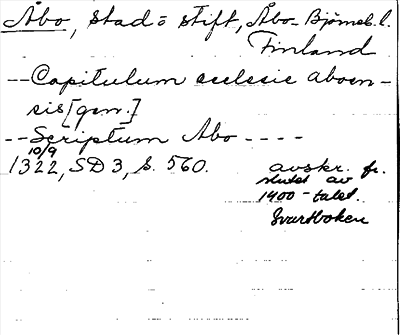 Åbo, stad = stift, Åbo-Björneb. l.
Finland
-- Capitulum ecclesie aboen-
sis [gen.]
-- Scriptum Abo ----
10/9
1322, SD 3, S. 560.
avskr. fr.
slutet av
1400-talet.
Svartboken